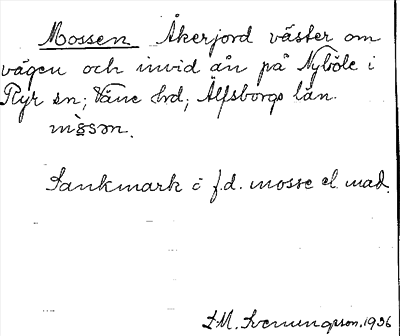 Mossen Åkerjord väster om
vägen och invid ån på Nyböle i
Ryr sn; Väne hrd; Älfsborgs län.
mɵ̀sən.
Sankmark o f.d. mosse el. mad.
L.M. Svenungsson. 1936